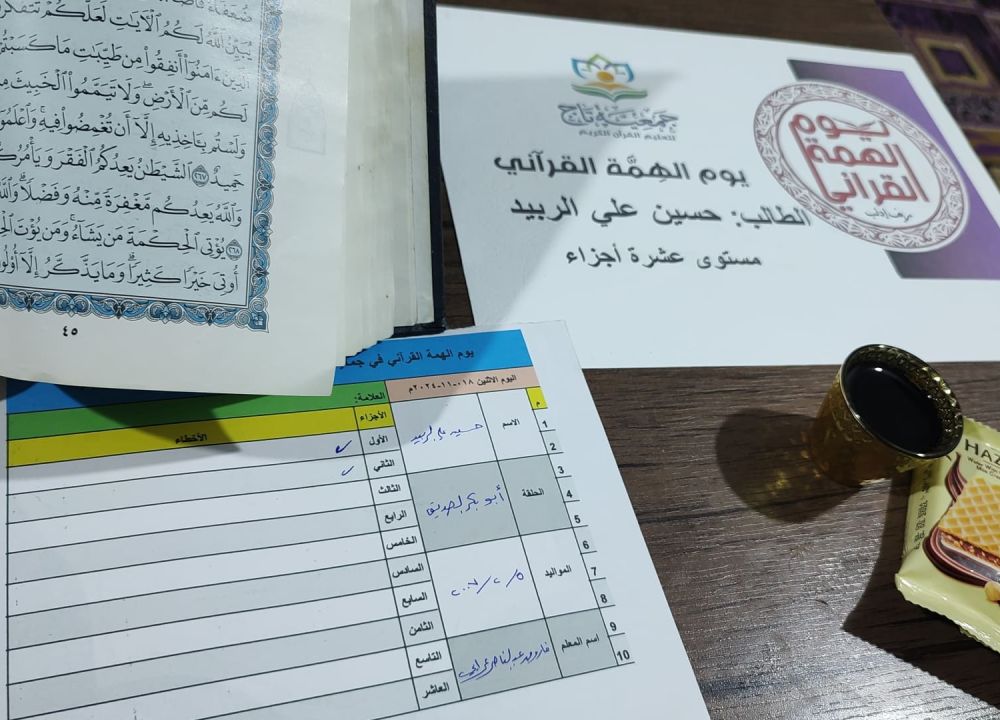 يُبَيِّنُ ٱللَّهُ لَكُمُ ٱلْآيَٰتِ لَعَلَّكُمْ تَتَفَكَّرُ
ءَامَنُوٓا۟ أَنفِقُوا۟ مِن طَيِّبَٰتِ مَا كَسَبْتُمْ
لَكُم مِّنَ ٱلْأَرْضِ وَلَا تَيَمَّمُوا۟ ٱلْخَبِيثَ مِ
وَلَسْتُم بِـَٔاخِذِيهِ إِلَّآ أَن تُغْمِضُوا۟ فِيهِ وَٱعْلَمُوٓ
حَمِيدٌ ٢٦٧ ٱلشَّيْطَٰنُ يَعِدُكُمُ ٱلْفَقْرَ وَيَأْمُرُكُ
وَٱللَّهُ يَعِدُكُم مَّغْفِرَةً مِّنْهُ وَفَضْلًا وَٱللَّ
٢٦٨ يُؤْتِى ٱلْحِكْمَةَ مَن يَشَآءُ وَمَن يُؤْتَ ٱلْحِ
أُوتِىَ خَيْرًا كَثِيرًا وَمَا يَذَّكَّرُ إِلَّآ أُو۟لُو
٤٥
جمعية تاج
لتعليم القرآن الكريم
يوم الهِمَّة القرآني
الطالب: حسين علي الربيد
مستوى عشرة أجزاء
يوم
الهمة
القرآني
يوم الهمة القرآني في جما
اليوم الاثنين ٠١٨-١١-٢٠٢٤م
العلامة:
م
الأجزاء
الأخطاء
1
الاسم
حسين علي الربيد
الأول ✓
2
الثاني ✓
3
الثالث
4
الحلقة
أبو بكر الصديق
الرابع
5
الخامس
6
السادس
7
المواليد
٥/٢/٢٠٠٧
السابع
8
الثامن
9
اسم المعلم
التاسع
10
العاشر
HAZ